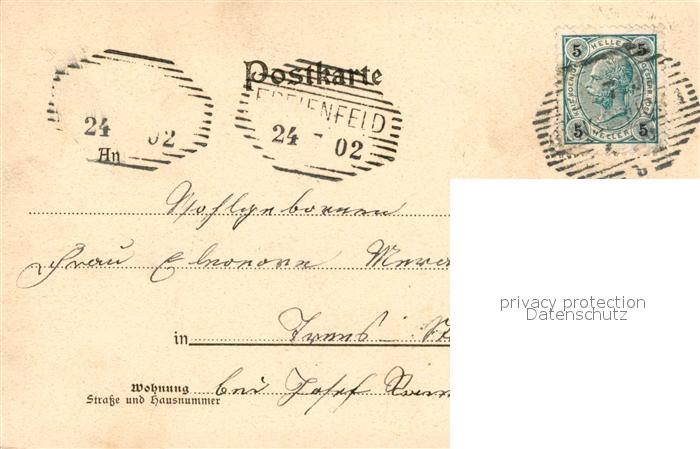 Postkarte
FREIENFELD
24 02
24 - 02
5 HELLER 5
5 HELLER 5
An
Wohlgeboren
Frau Eleonore
privacy protection
Datenschutz
in Trens
Wohnung
Straße und Hausnummer
bei Josef